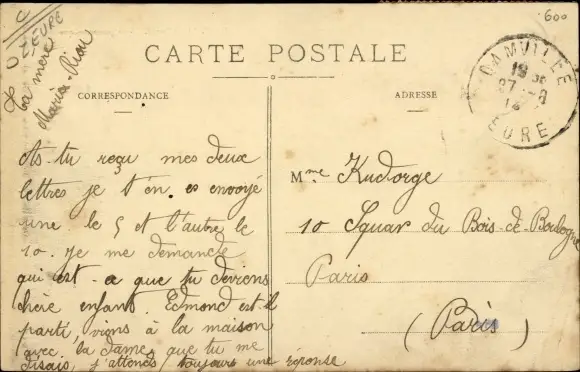 EURE
600
CARTE POSTALE
CORRESPONDANCE
ADRESSE
DAMVILLE
19 30
27 - 8
14
EURE
la mère
Maria Riou
As-tu reçu mes deux
lettres je t'en es envoyé
une le 5 et l'autre le
10. Je me demande
qui est-ce que tu deviens
chère enfant. Edmond est-il
parti, viens à la maison
avec la dame que tu me
disais, j'attends toujours une réponse
Mme Kudorge
10 Squar du Bois-de-Boulogne
Paris
(Paris)